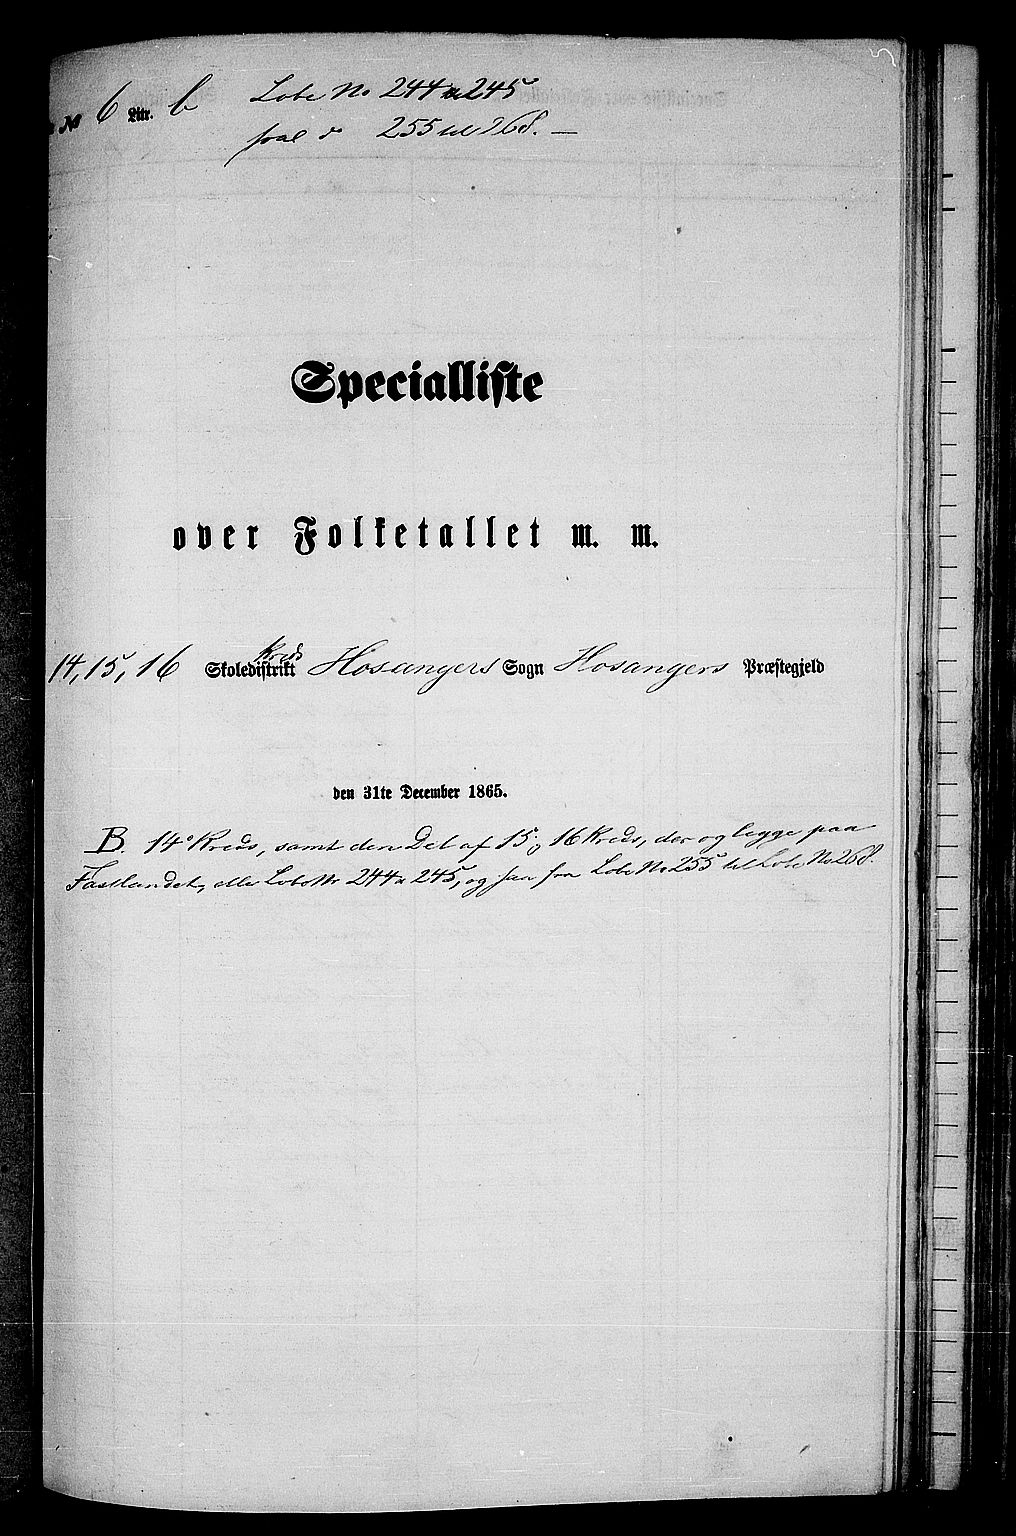 № 6 Litr. b Løbe No 244 & 245
saal do 255 til 268. —
Specialliste
over Folketallet m. m.
Kreds
14, 15, 16 Skoledistrikt Hosangers Sogn Hosangers Præstegjeld
den 31te December 1865.
B. 14e Kreds, samt den Del af 15 og 16 Kreds, der og ligge paa
Fastlandet, elle Løbe Nr 244 & 245, og saa fra Løbe No 255 til Løbe No 268.